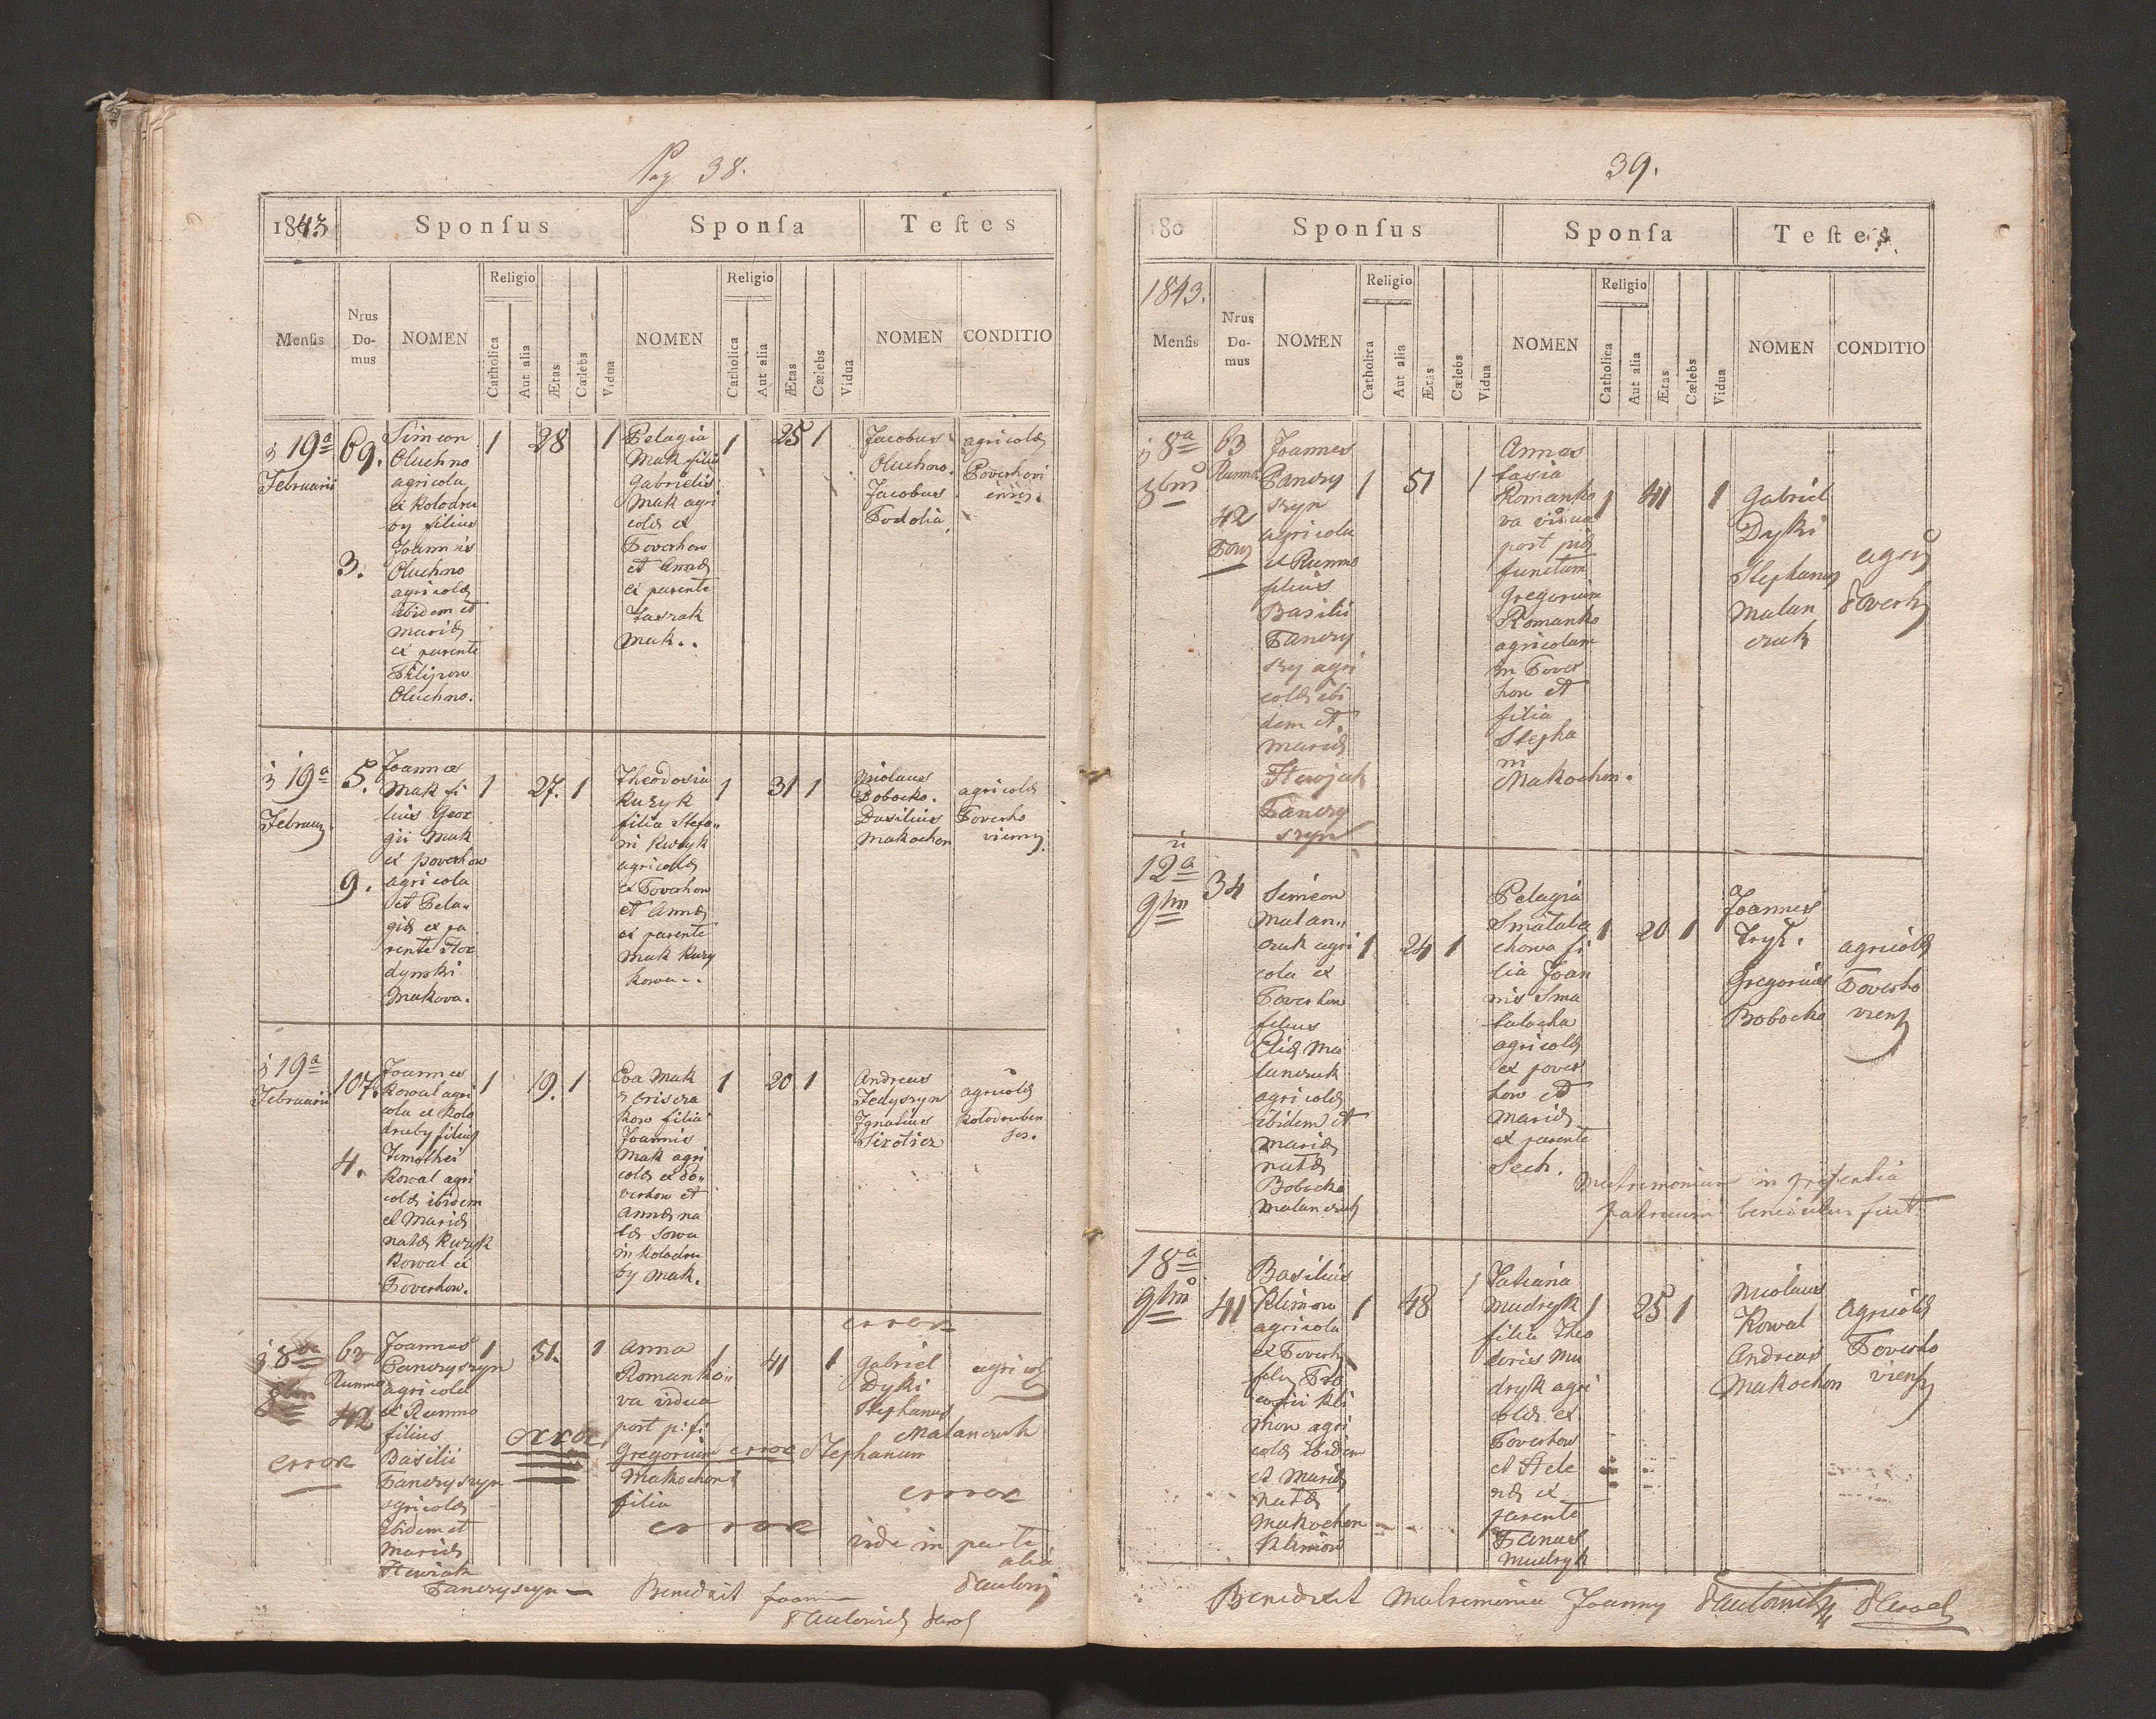 Pag 38.
1843
Sponsus
Sponsa
Testes
Mensis
Nrus Do-mus
NOMEN
Religio
Catholica
Aut alia
Ætas
Cælebs
Vidua
NOMEN
Religio
Catholica
Aut alia
Ætas
Cælebs
Vidua
NOMEN
CONDITIO
19a
Februarii
69.
3.
Simeon
Oluchno
agricola
ex Kolodru
by filius
Joannis
Oluchno
agricolæ
ibidem et
Mariæ
ex parente
Filipow
Oluchno.
1
28
1
Pelagia
Mak filia
Gabrielis
Mak agri
colæ ex
Poverhow
et Annæ
ex parente
Jasrak
Mak..
1
25
1
Jacobus
Oluchno.
Jacobus
Podolia
agricolæ
Poverhovi
enses.
19a
Februarii
5.
9.
Joannes
Mak fi
lius Geor
gii Mak
ex Poverhow
agricola
et Pela
giæ ex pa
rente Hor
dynski
Makova.
1
27.
1
Theodosia
Kuzyk
filia Stefa
ni Kuzyk
agricolæ
ex Poverhow
et Annæ
ex parente
Mak Kuzy
kowa..
1
31
1
Nicolaus
Bobocko.
Basilius
Makochon
agricolæ
Poverho
vienses.
19a
Februarii
107.
4.
Joannes
Kowal agri
cola ex Kolo
druby filius
Timothei
Kowal agri
colæ ibidem
et Mariæ
natæ Kuzyk
Kowal ex
Poverhow.
1
19.
1
Eva Mak
kow filia
Joannis
Mak agri
colæ ex Po
verhow et
Annæ na
tæ Sowa
in Kolodru
by Mak.
1
20
1
Andreas
Fedyszyn
Ignatius
agricolæ
Kolodruben
ses.
8va
63
Rumno
42
error
Joannes
Panczyszyn
agricola
ex Rumno
filius
Basilii
Panczyszyn
agricolæ
ibidem et
Mariæ
Panczyszyn
1
51.
1
error
Anna
Romanko
va vidua
post p: fi
Gregorium error Stephanum
Makochon
filia
error
1
41
1
error
Gabriel
Dyki
Stephanus
Malanczuk
agricolæ
error
vide in parte
alia
Benedixit Joannes
39.
180
1843.
Sponsus
Sponsa
Testes
Mensis
Nrus Do-mus
NOMEN
Religio
Catholica
Aut alia
Ætas
Cælebs
Vidua
NOMEN
Religio
Catholica
Aut alia
Ætas
Cælebs
Vidua
NOMEN
CONDITIO
8a
63
Rumno
42
Joannes
Panczy
szyn
agricola
ex Rumno
filius
Basilii
Panczy
szy agri
colæ ibi
dem et
Mariæ
Panczy
szyn
1
51
1
Annas
tasia
Romanko
va vidua
post piæ
functum
Gregorium
Romanko
agricolam
in Pover
how et
filia
Stepha
ni
Makochon.
1
41
1
Gabriel
Dyki
Stephanus
Malan
czuk
12a
9bris
34
Simeon
Malan
czuk agri
cola ex
Poverhow
filius
Eliæ Ma
lanczuk
agricolæ
ibidem et
Mariæ
natæ
Bobocko
Malanczuk
1
24
1
Pelagia
Smataba
chowa fi
lia Joan
nis Sma
agricolæ
ex Pover
how et
Mariæ
ex parente
Sech.
1
20
1
Joannes
Gregorius
Bobocko
agricolæ
Poverho
vienses
Matrimonium in præsentia
benedictum fuit
18a
9bris
41
Basilius
Klimow
agricola
ex Poverh
Klimow agri
colæ ibidem
et Mariæ
natæ
Makochon
Klimow
1
48
1
Tatiana
Mudryk
filia Theo
doris Mu
dryk agri
colæ ex
Poverhow
et Hele
næ ex
parente
Panas
Mudryk
1
25
1
Nicolaus
Kowal
Andreas
Makochon
agricolæ
Poverho
vienses
Benedixit Matrimonia Joannes